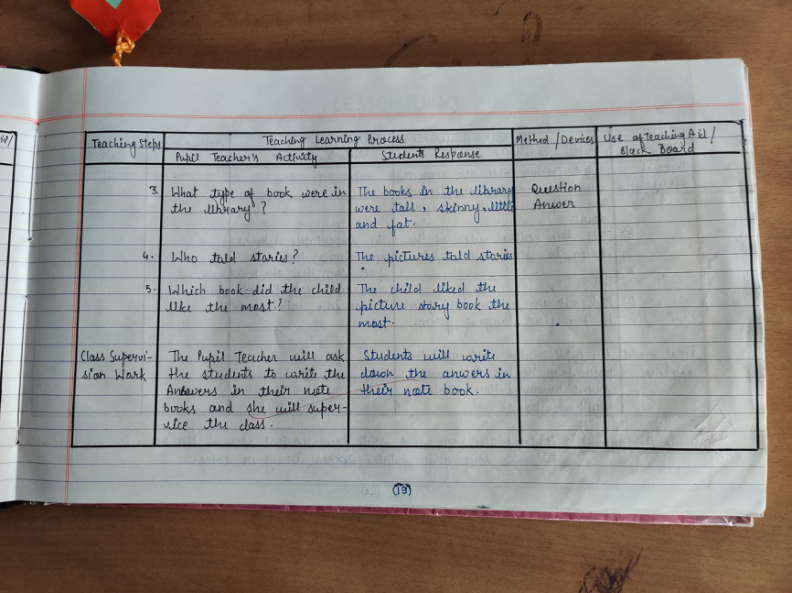 Teaching Steps
Teaching Learning Process
Method / Devices
Use of Teaching Aid /
Black Board
Pupil Teacher's Activity
Students Response
3. What type of book were in
the library ?
The books in the library
were tall, skinny, little
and fat.
Question
Answer
4. Who told stories?
The pictures told stories
5. Which book did the child
like the most?
The child liked the
picture story book the
most.
Class Supervi-
sion Work
The Pupil Teacher will ask
the students to write the
Answers in their note
books and she will super-
vice the class.
Students will write
down the anwers in
their note book.
(19)